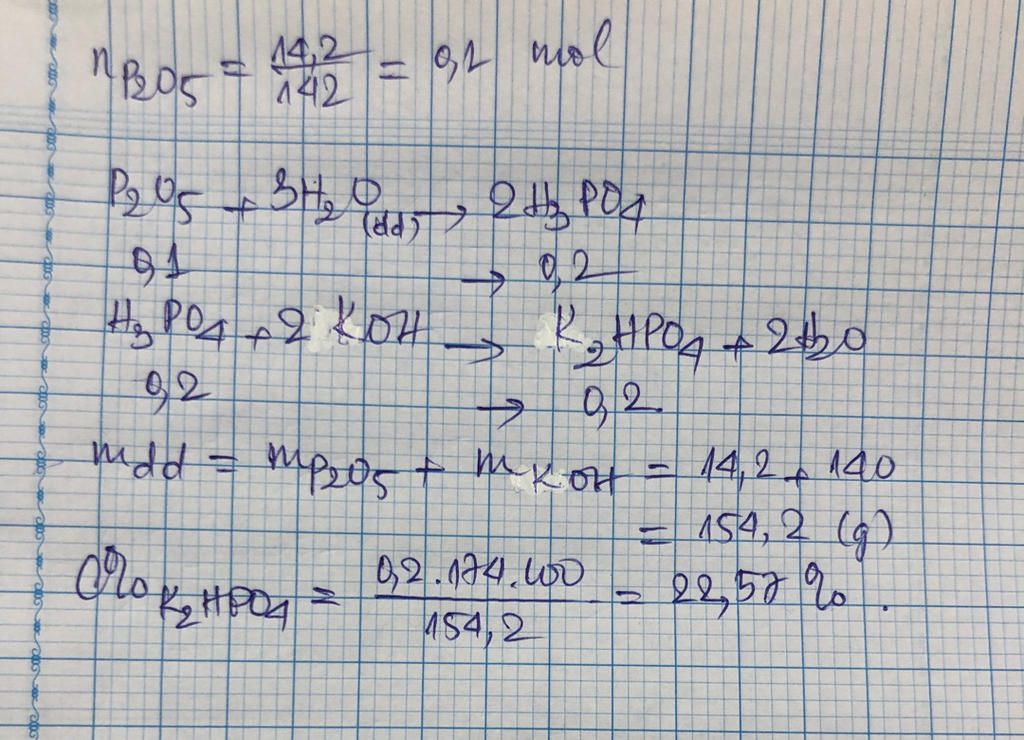 nP₂O₅ = 14,2/142 = 0,1 mol
P₂O₅ + 3H₂O (dd) → 2H₃PO₄
0,1 → 0,2
H₃PO₄ + 2KOH → K₂HPO₄ + 2H₂O
0,2 → 0,2
mdd = mP₂O₅ + mKOH = 14,2 + 140
= 154,2 (g)
C% K₂HPO₄ = 0,2.174.100/154,2 = 22,57%.